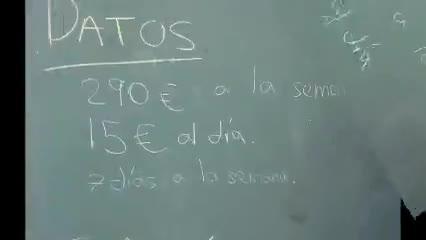 DATOS
290 € a la seman
15 € al día.
7 días a la semana.